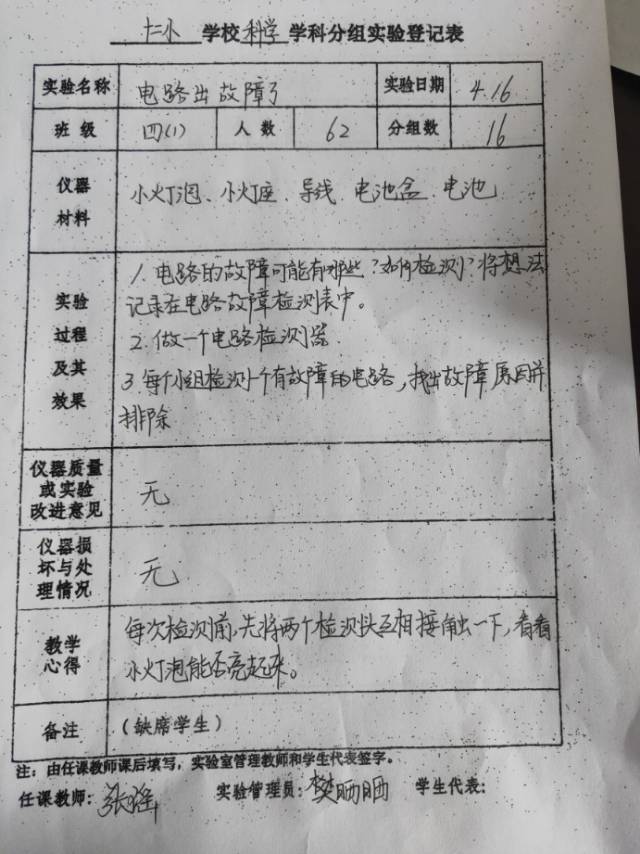 七小 学校 科学 学科分组实验登记表
实验名称 电路出故障了 实验日期 4.16
班级 四(1) 人数 62 分组数 16
仪器材料 小灯泡、小灯座、导线、电池盒、电池
实验过程及其效果 1. 电路的故障可能有哪些?如何检测?将想法
记录在电路故障检测表中。
2. 做一个电路检测器.
3. 每个小组检测一个有故障的电路,找出故障原因并
排除
仪器质量或实验改进意见 无
仪器损坏与处理情况 无
教学心得 每次检测前,先将两个检测头互相接触一下,看看
小灯泡能否亮起来。
备注 (缺席学生)
注:由任课教师课后填写,实验室管理教师和学生代表签字。
任课教师: 张瑶 实验管理员: 樊晒晒 学生代表: